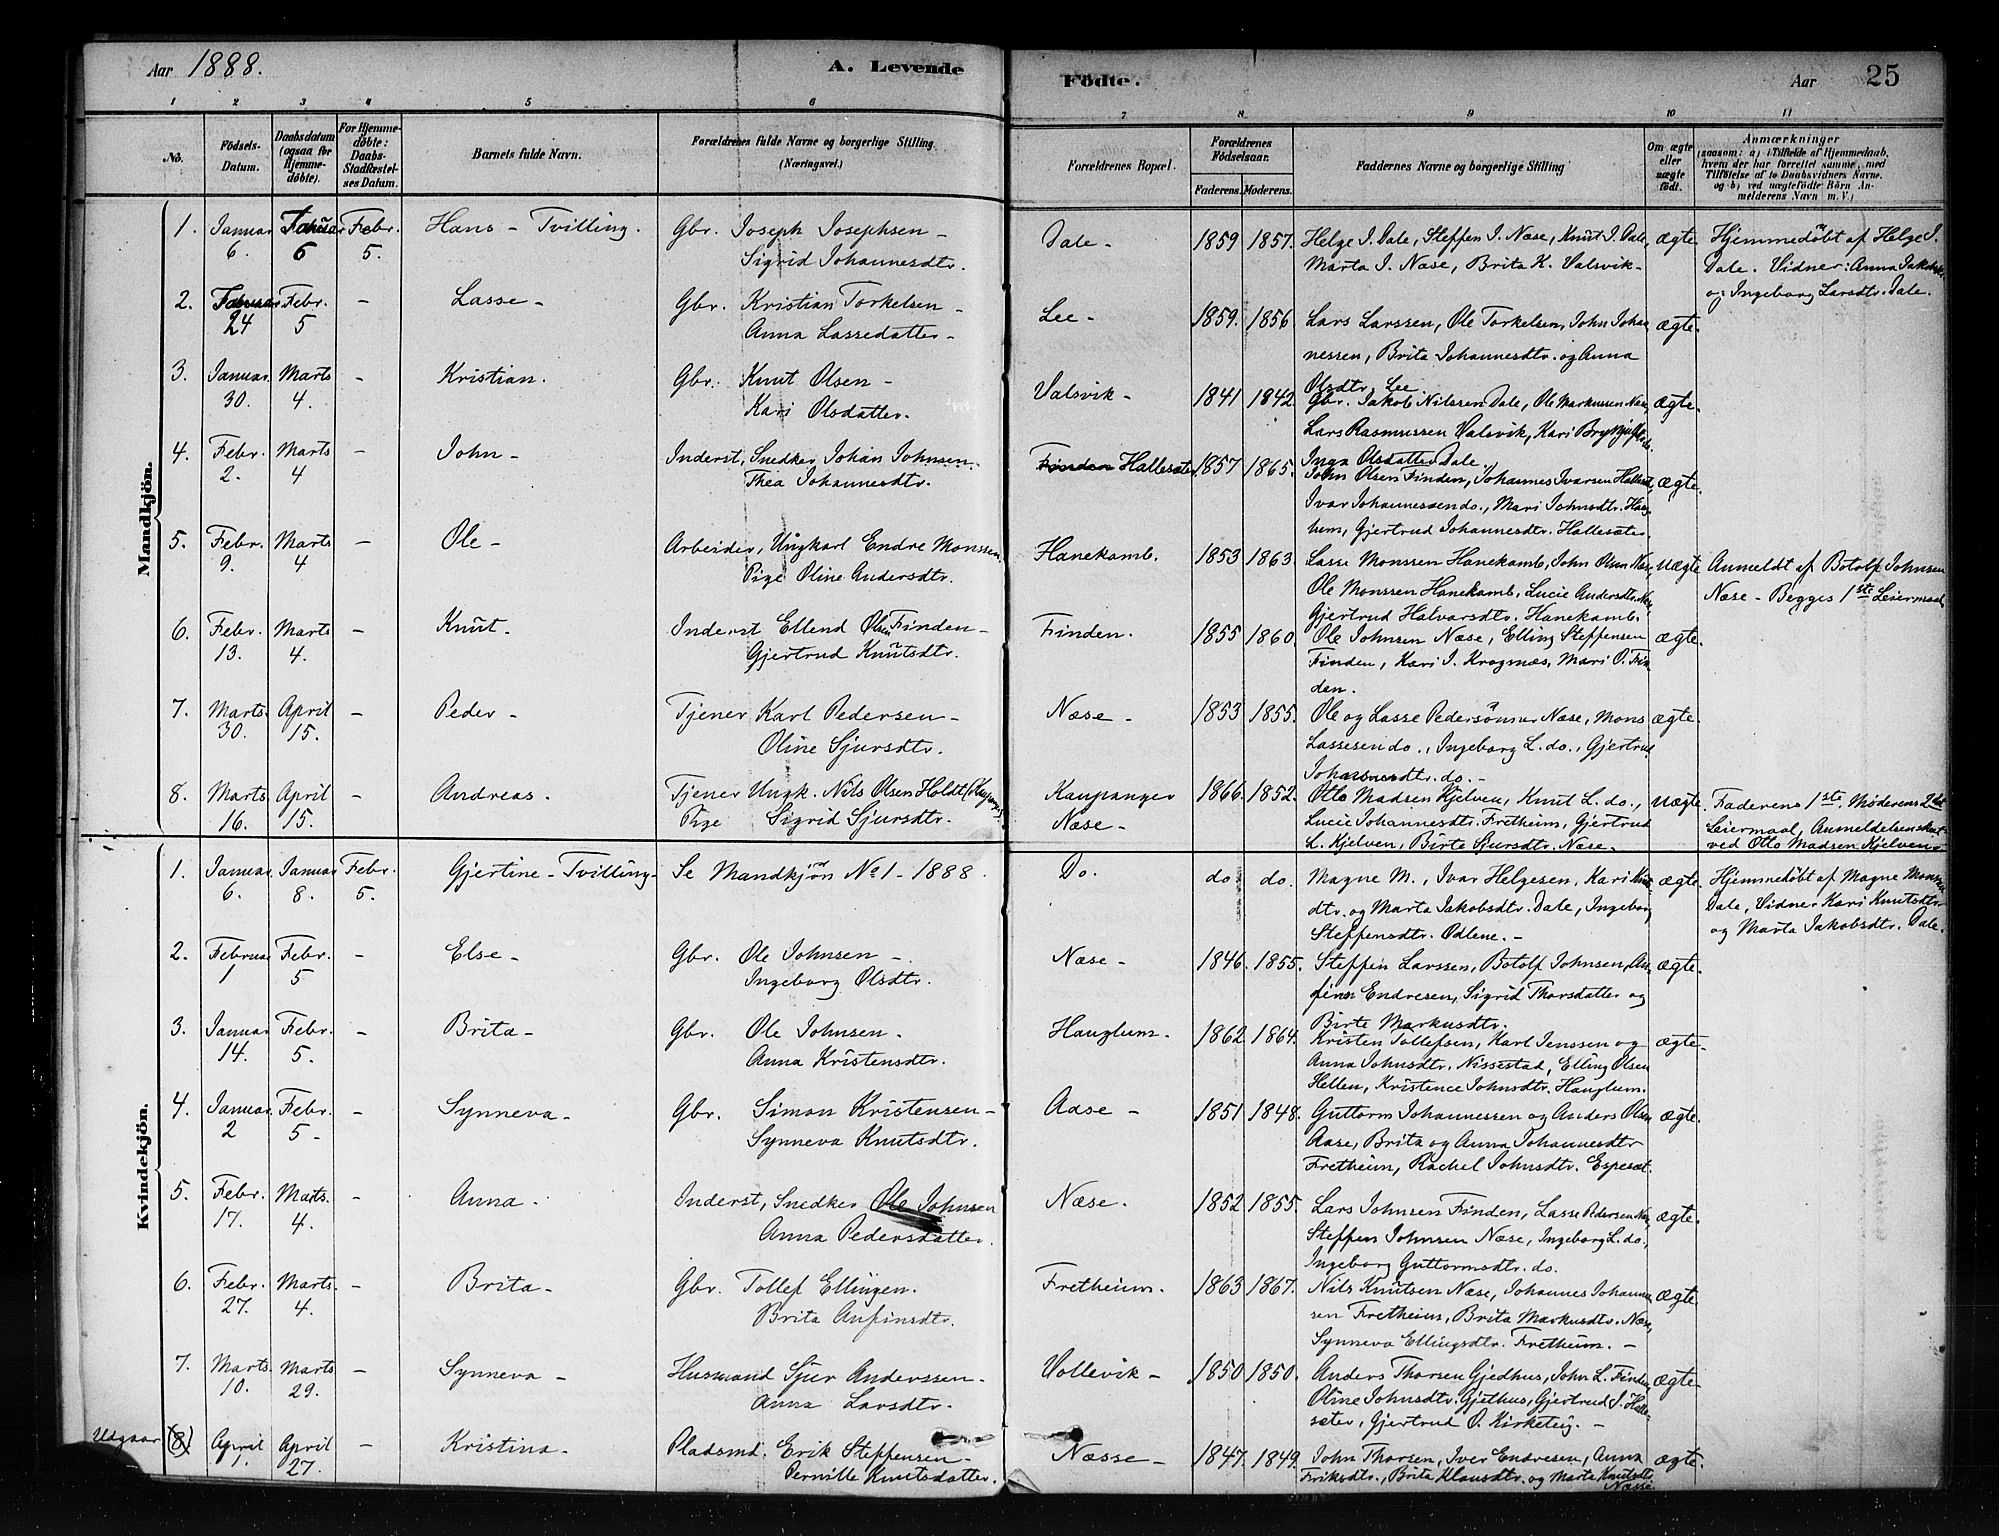 Aar 1888. A. Levende Födte. Aar 25
1 2 3 4 5 6 7 8 9 10 11
No. Födsels-Datum. Daabsdatum (ogsaa for Hjemme-döbte). For Hjemme-döbte: Daabs-Stadfæstel-ses Datum. Barnets fulde Navn. Forældrenes fulde Navne og borgerlige Stilling. (Næringsvei.) Forældrenes Bopæl. Forældrenes Födselsaar. Faderens. Moderens. Faddernes Navne og borgerlige Stilling Om ægte eller uægte födt. Anmærkninger
(saasom: a) i Tilfælde af Hjemmedaab, hvem der har forrettet samme, med Tilföielse af to Daabsvidners Navne. og b) ved uægtefödte Börn An-melderens Navn m. V.)
Mandkjön.
1. Januar Januar Febr. Hans - Tvilling. Gbr. Joseph Josephsen - Dale - 1859 1857. Helge J. Dale, Steffen J. Næse, Knut J. Dale, ægte. Hjemmedöbt af Helge J.
6. 6 5. Sigrid Johannesdtr. Marta J. Næse, Brita K. Valsvik - Dale. Vidner: Anna
og Ingeborg Larsdtr. Dale.
2. Januar Febr. - Lasse - Gbr. Kristian Torkelsen - Lee - 1859. 1856 Lars Larssen, Ole Torkelsen, John Johan ægte.
24 5 Anna Lassedatter - nessen, Brita Johannesdtr. og Anna
Olsdtr. Lee
3. Januar Marts - Kristian. Gbr. Knut Olsen - Valsvik - 1841 1842. Gbr. Jakob Nilssen Dale, Ole Markussen Næse, ægte.
30. 4. Kari Olsdatter. Lars Rasmussen Valsvik, Kari
Inga Olsdatter Dale.
4. Febr. Marts - John - Inderst, Snedker Johan Johnsen - Finden Hallesæter 1857 1865. John Olsen Finden, Johannes Ivarsen ægte.
2. 4 Thea Johannesdtr. Ivar Johannessen do., Mari Johnsdtr. Haug
lum, Gjertrud Johannesdtr. Hallesæter.
5. Febr. Marts - Ole - Arbeider, Ungkarl Endre Monssen Hanekamb. 1853 1863. Lasse Monssen Hanekamb, John Olsen Næse, uægte Anmeldt af Botolf Johnsen
9. 4 Pige Oline Andersdtr. Ole Monssen Hanekamb, Lucie Andersdtr. Næse, Næse - Begges 1ste Leiermaal
Gjertrud Halvarsdtr. Hanekamb.
6. Febr. Marts - Knut. Inderst Ellend Olsen Finden - Finden. 1855 1860. Ole Johnsen Næse, Elling Steffensen ægte.
13. 4. Gjertrud Knutsdtr. Finden, Kari J. Krogsnæs, Mari O. Fin
den.
7. Marts. April - Peder - Tjener Karl Pedersen - Næse - 1853 1855. Ole og Lasse Pedersönner Næse, Mons ægte.
30. 15. Oline Sjursdtr. Lassesen do., Ingeborg L. do., Gjertrud
Johannesdtr. do. -
8. Marts April - Andreas. Tjener Ungk. Nils Olsen Holdt Kaupanger 1866. 1852. Otto Madsen Kjelven, Knut L. do., uægte. Faderens 1ste, Moderens 2det
16. 15. Pige Sigrid Sjursdtr. Næse - Lucie Johannesdtr. Fretheim, Gjertrud Leiermaal,
L. Kjelven, Birte Sjursdtr. Næse. ved Otto Madsen Kjelven.
Kvindekjön.
1. Januar Januar Febr. Gjertine - Tvilling - Se Mandkjön No 1 - 1888. Do. do. do. Magne M., Ivar Helgesen, Kari Knuts ægte. Hjemmedöbt af Magne Monssen
6. 8. 5. dtr. og Marta Jakobsdtr. Dale, Ingeborg Dale, Vidner Kari Knutsdtr.
Steffensdtr. Odlene. - og Marta Jakobsdtr. Dale.
2. Februar Febr. - Else - Gbr. Ole Johnsen - Næse - 1846. 1855. Steffen Larssen, Botolf Johnsen, An ægte.
1 5 Ingeborg Olsdtr. finn Endresen, Sigrid Thorsdatter og
Birte Markusdtr.
3. Januar Febr. - Brita - Gbr. Ole Johnsen - Hauglum - 1862 1864. Kristen Tollefsen, Karl Jenssen og ægte -
14. 5. Anna Kristensdtr. Anna Johnsdtr. Nissestad, Elling Olsen
Hellen, Kristence Johnsdtr. Hauglum.
4. Januar Febr. - Synneva - Gbr. Simon Kristensen - Aase - 1851 1848. Guttorm Johannessen og Anders Olsen ægte.
2 5 - Synneva Knutsdtr. Aase, Brita og Anna Johannesdtr
Fretheim, Rachel Johnsdtr. Espesæt.
5. Febr. Marts. - Anna - Inderst, Snedker Ole Johnsen Næse. 1852 1855. Lars Johnsen Finden, Lasse Pedersen Næse, ægte.
17. 4. Anna Pedersdatter. Steffen Johnsen Næse, Ingeborg L. do.,
Ingeborg Guttormsdtr. do.
6. Febr. Marts. - Brita - Gbr. Tollef Ellingen. Fretheim. 1863 1867. Nils Knutsen Næse, Johannes Johannes ægte.
27. 4. Brita Anfinsdtr. sen Fretheim, Brita Markusdtr. Næse,
Synneva Ellingsdtr. Fretheim. -
7. Marts. Marts - Synneva - Husmand Sjur Anderssen - Vollevik - 1850 1850. Anders Thorsen Gjedhus, John L. Finden, ægte -
10. 29. Anna Larsdtr. Oline Johnsdtr. Gjethus, Gjertrud J. Halle-
sæter, Gjertrud O. Kirketeig. -
Udgaar (8) April April - Kristina - Pladsmd. Erik Steffensen - Næsse - 1847. 1849. John Thorsen, Iver Endresen, Anna ægte.
1. 27. Pernille Knutsdatter. Eriksdtr., Brita Klausdtr. og Marta Knutsdtr.
Næsse.